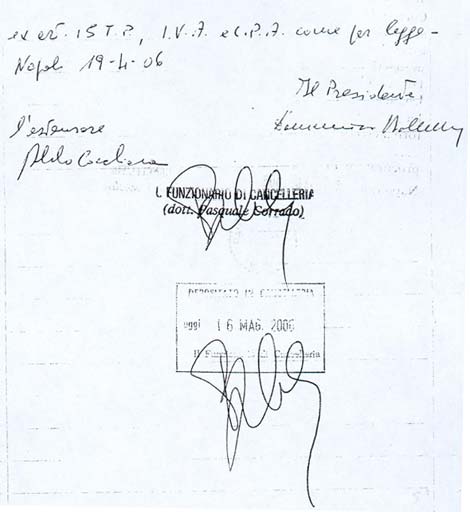 ex art. 15 T.P., I.V.A. e C.P.A. come per legge -
Napoli 19-4-06
Il Presidente
l'estensore
Aldo
IL FUNZIONARIO DI CANCELLERIA
(dott. Pasquale Corrado)
DEPOSITATO IN CANCELLERIA
oggi 16 MAG. 2006
Il Funzionario di Cancelleria